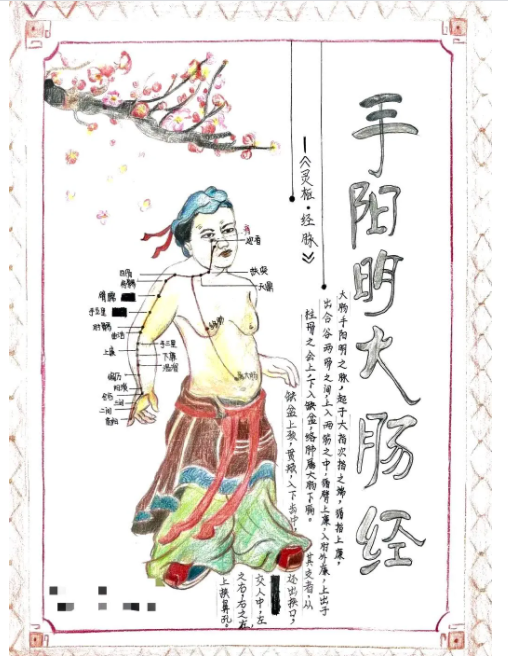 手阳明大肠经
大肠手阳明之脉，起于大指次指之端，循指上廉，
出合谷两骨之间，上入两筋之中，循臂上廉，入肘外廉，上出于
柱骨之会上，下入缺盆，络肺，属大肠下膈。
其支者，从
缺盆上颈，贯颊，入下齿中，
还出挟口，
交人中，左
之右，右之左，
上挟鼻孔。
—《灵枢·经脉》
迎香
扶突
天鼎
肩髃
臂臑
手五里
肘髎
曲池
上廉
手三里
下廉
温溜
偏历
阳溪
合谷
三间
二间
商阳
络肺
属大肠